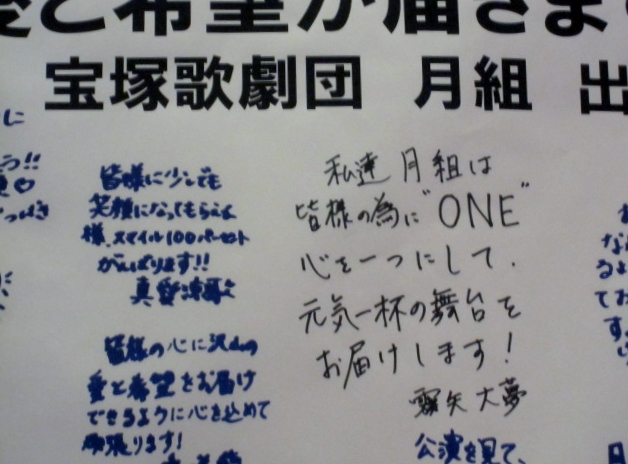 愛と希望が届きま
宝塚歌劇団 月組 出
皆様に少しでも
笑顔になってもらえる
様、スマイル100パーセント
がんばります!!
私達月組は
皆様の為に"ONE"
心を一つにして、
元気一杯の舞台を
お届けします!
霧矢大夢
皆様の心に沢山の
愛と希望をお届け
できるように心を込めて
頑張ります!
公演を見て、